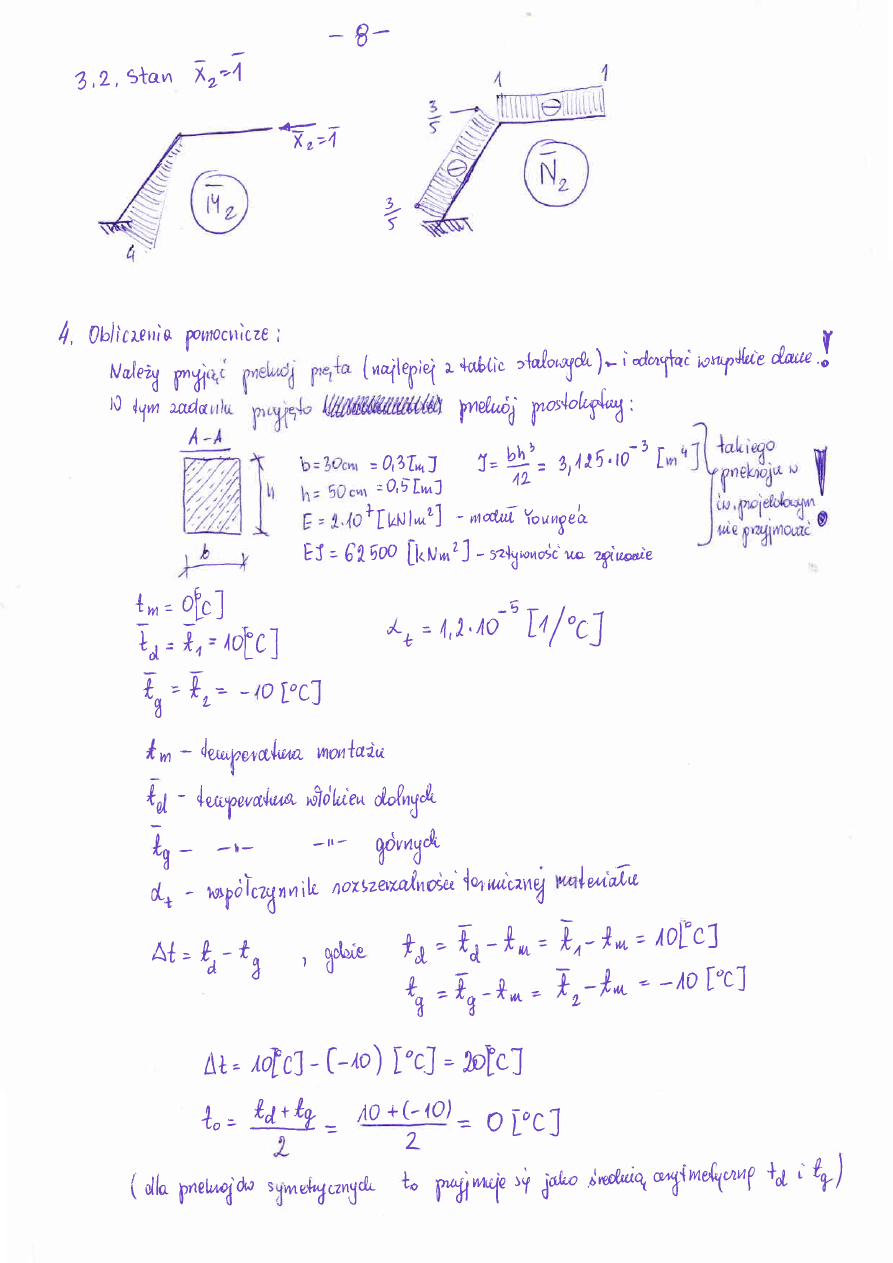 - 8 -
3.2. Stan X̄₂=1̄
1 1
3/5
X̄₂=1̄
M̄₂
N̄₂
3/5
4
4. Obliczenia pomocnicze:
Należy przyjąć przekrój pręta (najlepiej z tablic stalowych) - i odczytać wszystkie dane!
W tym zadaniu przyjęto przekrój prostokątny:
A-A
b=30cm =0,3[m] J= bh³/12 = 3,125·10⁻³ [m⁴]
h
h=50cm =0,5[m]
E=2·10⁷[kN/m²] - moduł Younge'a
EJ=62500 [kNm²] - sztywność na zginanie
b
takiego
przekroju w
ćw. projektowym
nie przyjmować!
tm = 0[°C]
t̄d = t̄₁ = 10[°C] αt = 1,2·10⁻⁵ [1/°C]
t̄g = t̄₂ = -10 [°C]
tm - temperatura montażu
t̄d - temperatura włókien dolnych
t̄g - -"- -"- górnych
αt - współczynnik rozszerzalności termicznej materiału
Δt = td - tg , gdzie td = t̄d - tm = t̄₁ - tm = 10[°C]
tg = t̄g - tm = t̄₂ - tm = -10 [°C]
Δt = 10[°C] - (-10) [°C] = 20[°C]
t₀ = (td + tg)/2 = (10 + (-10))/2 = 0 [°C]
(dla przekrojów symetrycznych t₀ przyjmuje się jako średnią arytmetyczną td i tg)